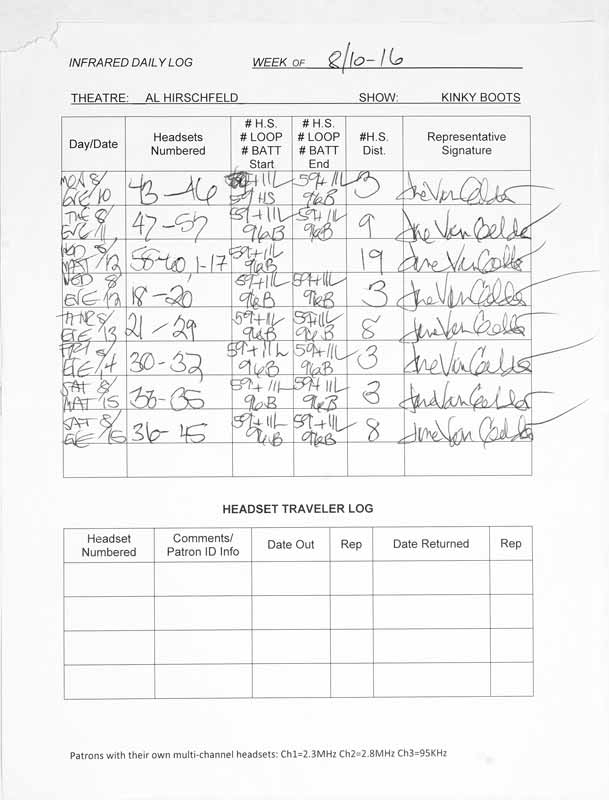 INFRARED DAILY LOG WEEK OF 8/10-16
THEATRE: AL HIRSCHFELD SHOW: KINKY BOOTS
Day/Date Headsets Numbered # H.S. # LOOP # BATT Start # H.S. # LOOP # BATT End #H.S. Dist. Representative Signature
MON 8/ EVE 10 43-46 59+11L 59HS 59+11L 96B 3
TUE 8/ EVE 11 47-57 59+11L 96B 59+11L 96B 9
WED 8/ MAT 12 58-60, 1-17 59+11L 96B 19
WED 8/ EVE 12 18-20 59+11L 96B 59+11L 96B 3
THUR 8/ EVE 13 21-29 59+11L 96B 59+11L 96B 8
FRI 8/ EVE 14 30-32 59+11L 96B 59+11L 96B 3
SAT 8/ MAT 15 33-35 59+11L 96B 59+11L 96B 3
SAT 8/ EVE 15 36-45 59+11L 96B 59+11L 96B 8
HEADSET TRAVELER LOG
Headset Numbered Comments/ Patron ID Info Date Out Rep Date Returned Rep
Patrons with their own multi-channel headsets: Ch1=2.3MHz Ch2=2.8MHz Ch3=95KHz